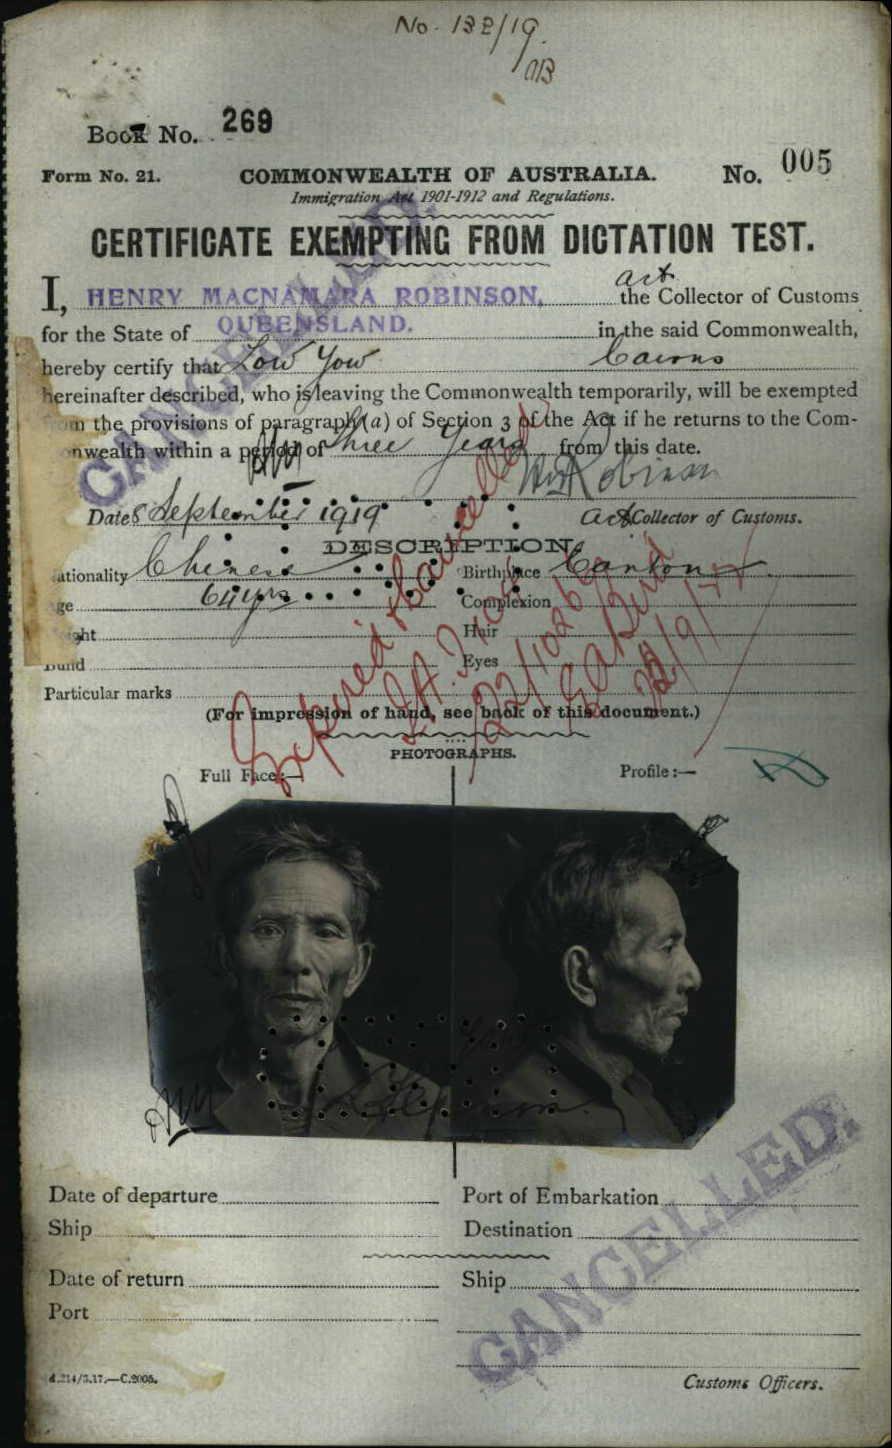 No. 132/19.
Book No. 269
Form No. 21. COMMONWEALTH OF AUSTRALIA. No. 005
Immigration Act 1901-1912 and Regulations.
CERTIFICATE EXEMPTING FROM DICTATION TEST.
act
I, HENRY MACNAMARA ROBINSON, the Collector of Customs
for the State of QUEENSLAND. in the said Commonwealth,
hereby certify that Low Yow Cairns
hereinafter described, who is leaving the Commonwealth temporarily, will be exempted
the provisions of paragraph (a) of Section 3 of the Act if he returns to the Com-
nwealth within a period of Three Years from this date.
CANCELLED.
HM Robinson
Date 8 September 1919 Act Collector of Customs.
DESCRIPTION.
ationality Chinese Birthplace Canton
ge 64 yrs Complexion
ight Hair
Build Eyes
Particular marks
Expired & Cancelled
22/9/22
(For impression of hand, see back of this document.)
PHOTOGRAPHS.
Full Face:— Profile:—
Date of departure Port of Embarkation
Ship Destination
Date of return Ship
Port
CANCELLED.
C.2005. Customs Officers.